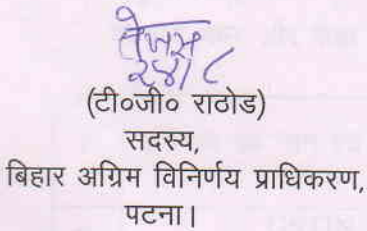 (टी०जी० राठोड)
सदस्य,
बिहार अग्रिम विनिर्णय प्राधिकरण,
पटना।